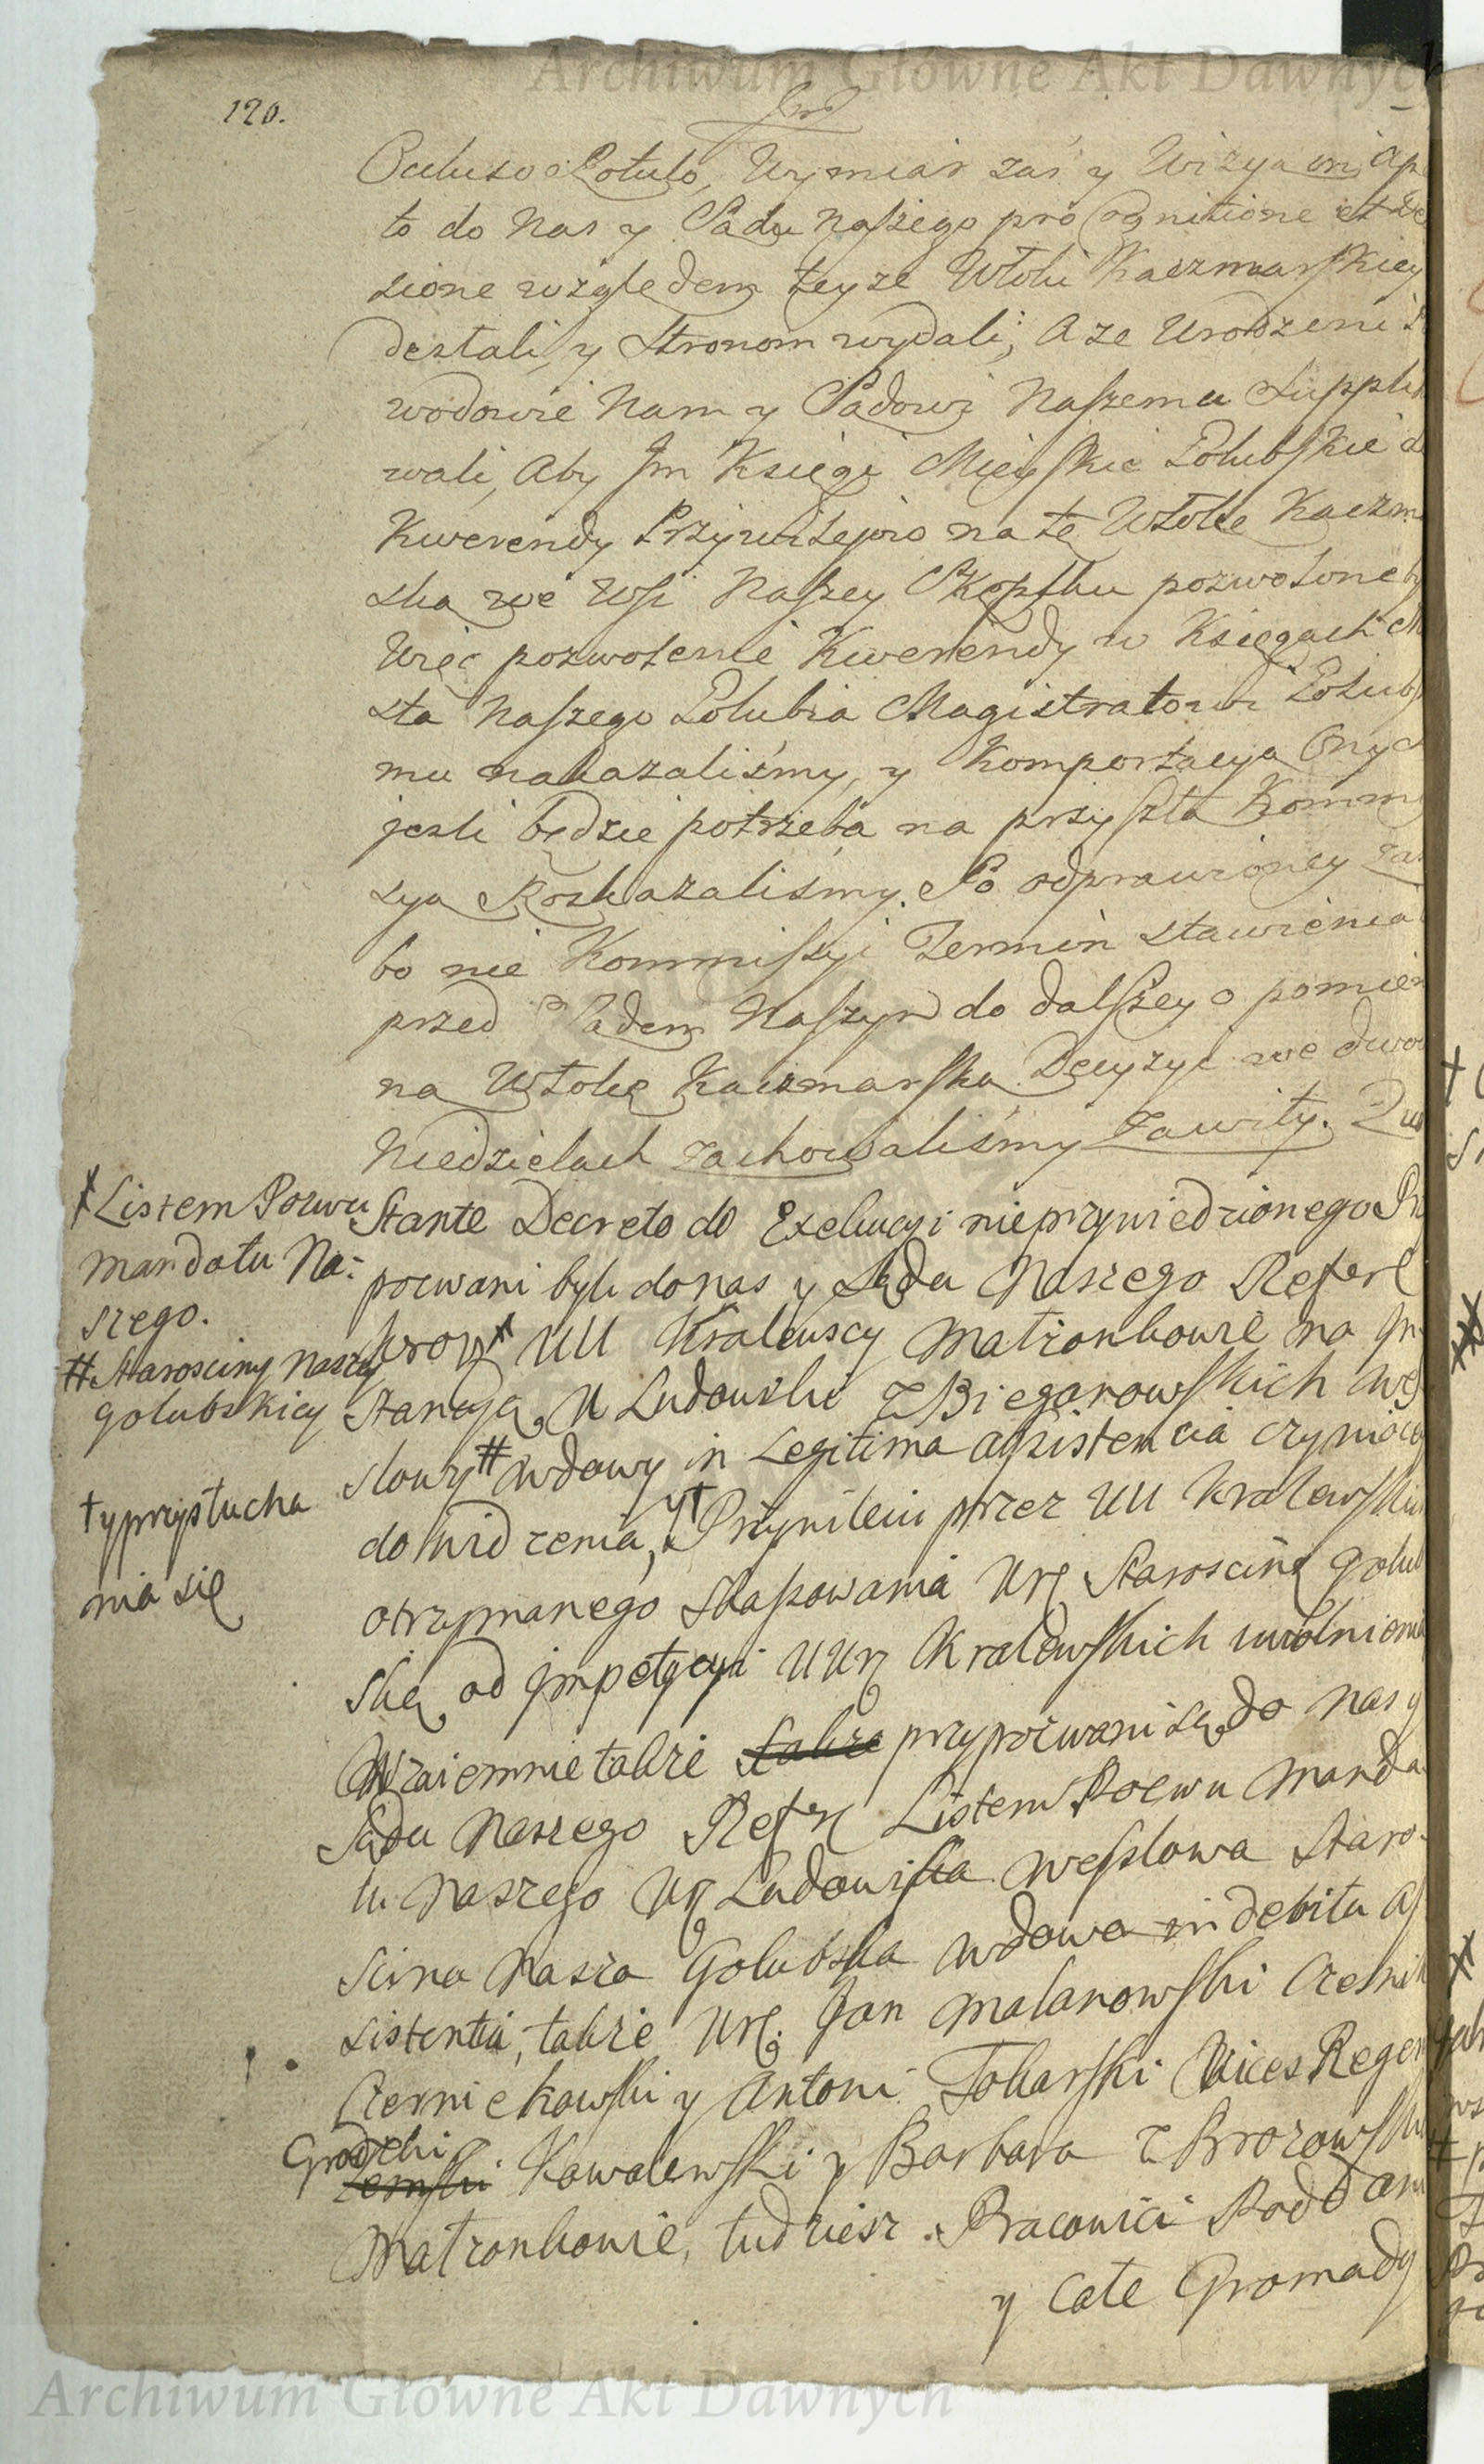 Archiwum Główne Akt Dawnych
120.
Oculuso Rotulo, Wymiar zaś y Wizya
to do Nas y Sądu Naszego pro Cognitione et
sione względem teyze Włoki Kaczmarskiey
destali, y Stronom wydali; A ze Urodzeni
wodowie Nam y Sądowi Naszemu Suppli
wali, Aby Jm Księgi Mieyskie Golubskie
Kwerendy Przywileyio na tę Włokę Kaczm
ska we Wsi Naszey Skępsku pozwolone
Więc pozwolenie Kwerendy w Księgach
sta Naszego Golubia Magistratowi Golubs
mu nakazaliśmy, y Komportacya Onych
jesli będzie potrzeba na przyszłą Kommi
sya Roskazaliśmy. Po odprawioney zas
bo nie Kommissyi Termin stawienia
przed Sądem Naszym do dalszey o pomien
na Włokę Kaczmarską Decyzyi we dwoch
Niedzielach zachowaliśmy zawity.
Stante Decreto do Exekucyi nieprzywiedzionego
pozwani byli do nas y Sądu Naszego Referl
kron x UU Kralewscy Małzonkowie na In
stancyą U Ludowiki z Bieganowskich Węs
slowy # wdowy in Legitima assistencia czyniącey
do widzenia, y† Przywileiu przez UU Kralewskich
otrzymanego skassowania Ur Starościnę Golub
ską od Jmpetycyi UUr Kralewskich uwolnienia
Wzaiemnie także także przypozwani są do nas y
Sądu Naszego Refer Listem Pozwu Manda
tu Naszego Ur Ludowika Węsslowa Staro-
scina Nasza Golubska wdowa in debita As
sistentia, także Ur. Jan Malanowski Cześnik
Czerniekowski y Antoni Tokarski Vices Regens
Grodzki Zemski Kowalewski y Barbara z Brozowskich
Małzonkowie, tudziesz Pracowici Poddani
y Całe Gromady
x Listem Pozwu
Mandatu Na:
szego.
# Starosciny naszy
golubskiey
† y przysłucha
nia się
Archiwum Główne Akt Dawnych